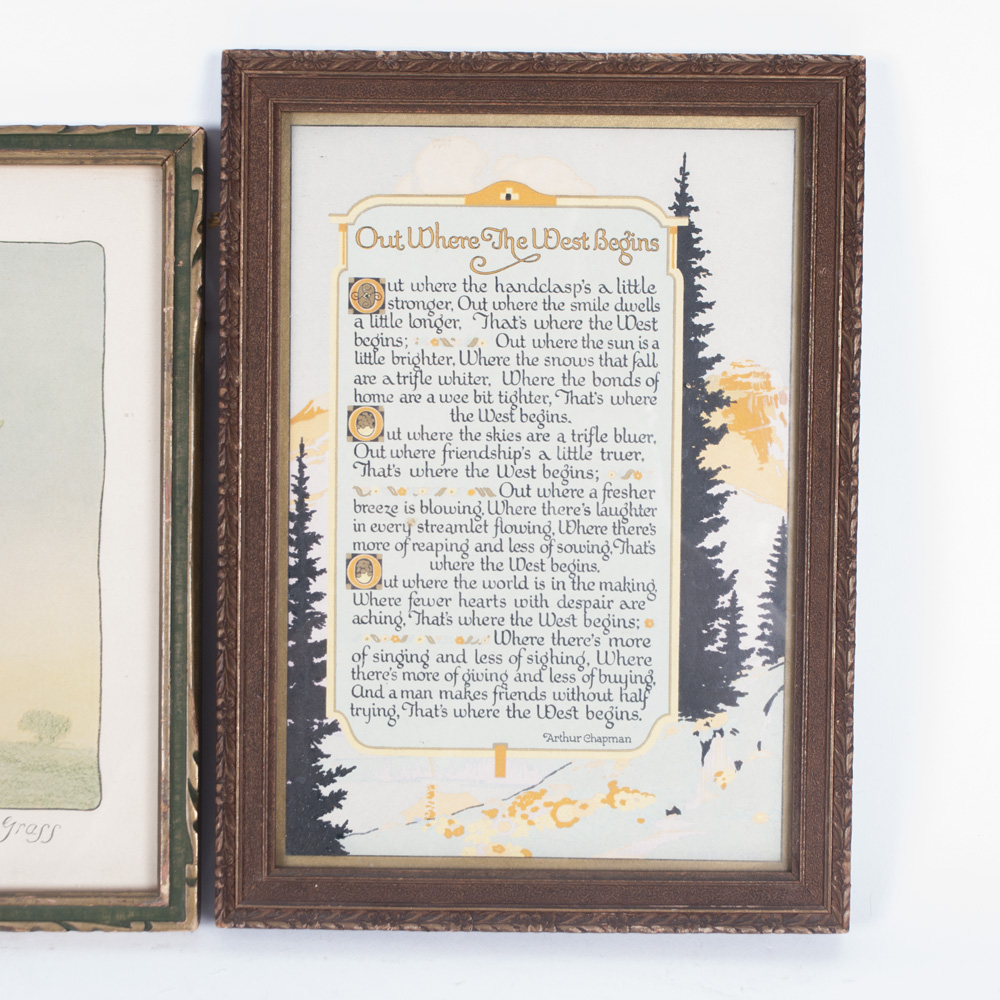 Out Where The West Begins
Out where the handclasp's a little
stronger, Out where the smile dwells
a little longer, That's where the West
begins; Out where the sun is a
little brighter, Where the snows that fall
are a trifle whiter, Where the bonds of
home are a wee bit tighter, That's where
the West begins.
Out where the skies are a trifle bluer,
Out where friendship's a little truer,
That's where the West begins;
Out where a fresher
breeze is blowing, Where there's laughter
in every streamlet flowing, Where there's
more of reaping and less of sowing, That's
where the West begins.
Out where the world is in the making,
Where fewer hearts with despair are
aching, That's where the West begins;
Where there's more
of singing and less of sighing, Where
there's more of giving and less of buying,
And a man makes friends without half
trying, That's where the West begins.
Arthur Chapman
Grass